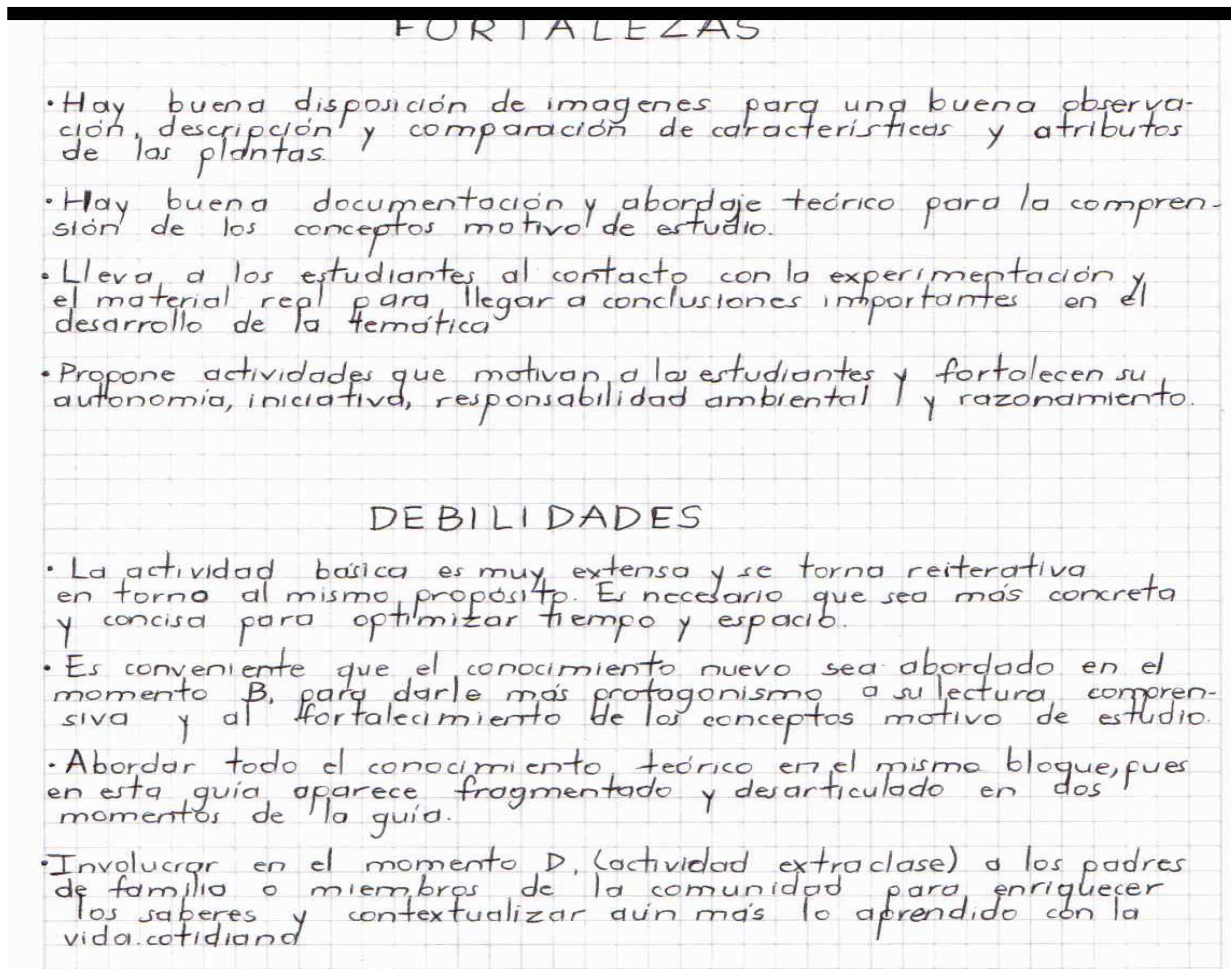 FORTALEZAS
• Hay buena disposición de imagenes para una buena observa-
ción, descripción y comparación de características y atributos
de las plantas.
• Hay buena documentación y abordaje teórico para la compren-
sión de los conceptos motivo de estudio.
• Lleva a los estudiantes al contacto con la experimentación y
el material real para llegar a conclusiones importantes en el
desarrollo de la temática
• Propone actividades que motivan a los estudiantes y fortalecen su
autonomía, iniciativa, responsabilidad ambiental y razonamiento.
DEBILIDADES
• La actividad básica es muy extensa y se torna reiterativa
en torno al mismo propósito. Es necesario que sea más concreta
y concisa para optimizar tiempo y espacio.
• Es conveniente que el conocimiento nuevo sea abordado en el
momento B, para darle más protagonismo a su lectura compren-
siva y al fortalecimiento de los conceptos motivo de estudio.
• Abordar todo el conocimiento teórico en el mismo bloque, pues
en esta guía aparece fragmentado y desarticulado en dos
momentos de la guía.
• Involucrar en el momento D, (actividad extraclase) a los padres
de familia o miembros de la comunidad para enriquecer
los saberes y contextualizar aún más lo aprendido con la
vida cotidiana